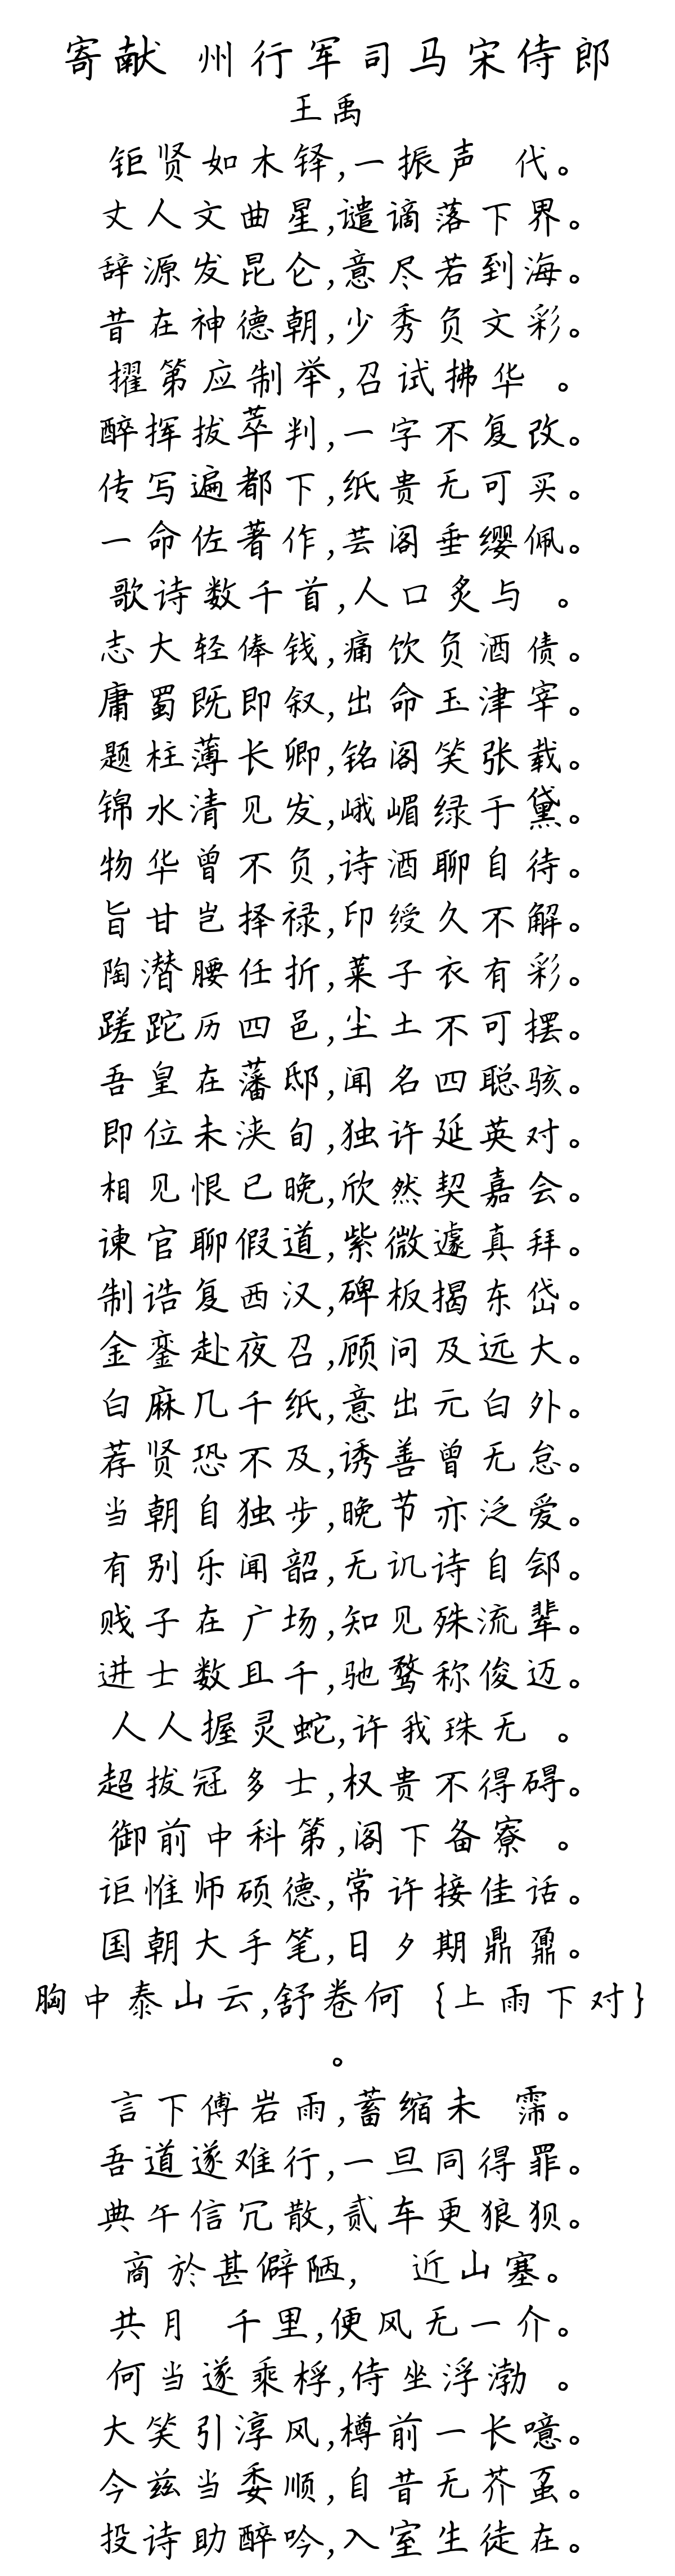 寄献 州行军司马宋侍郎
王禹
钜贤如木铎,一振声 代。
丈人文曲星,谴谪落下界。
辞源发昆仑,意尽若到海。
昔在神德朝,少秀负文彩。
擢第应制举,召试拂华 。
醉挥拔萃判,一字不复改。
传写遍都下,纸贵无可买。
一命佐著作,芸阁垂缨佩。
歌诗数千首,人口炙与 。
志大轻俸钱,痛饮负酒债。
庸蜀既即叙,出命玉津宰。
题柱薄长卿,铭阁笑张载。
锦水清见发,峨嵋绿于黛。
物华曾不负,诗酒聊自待。
旨甘岂择禄,印绶久不解。
陶潜腰任折,莱子衣有彩。
蹉跎历四邑,尘土不可摆。
吾皇在藩邸,闻名四聪骇。
即位未浃旬,独许延英对。
相见恨已晚,欣然契嘉会。
谏官聊假道,紫微遽真拜。
制诰复西汉,碑板揭东岱。
金銮赴夜召,顾问及远大。
白麻几千纸,意出元白外。
荐贤恐不及,诱善曾无怠。
当朝自独步,晚节亦泛爱。
有别乐闻韶,无讥诗自郐。
贱子在广场,知见殊流辈。
进士数且千,驰骛称俊迈。
人人握灵蛇,许我珠无 。
超拔冠多士,权贵不得碍。
御前中科第,阁下备寮 。
讵惟师硕德,常许接佳话。
国朝大手笔,日夕期鼎鼐。
胸中泰山云,舒卷何 {上雨下对}
。
言下傅岩雨,蓄缩未 霈。
吾道遂难行,一旦同得罪。
典午信冗散,贰车更狼狈。
商於甚僻陋, 近山塞。
共月 千里,便风无一介。
何当遂乘桴,侍坐浮渤 。
大笑引淳风,樽前一长噫。
今兹当委顺,自昔无芥虿。
投诗助醉吟,入室生徒在。